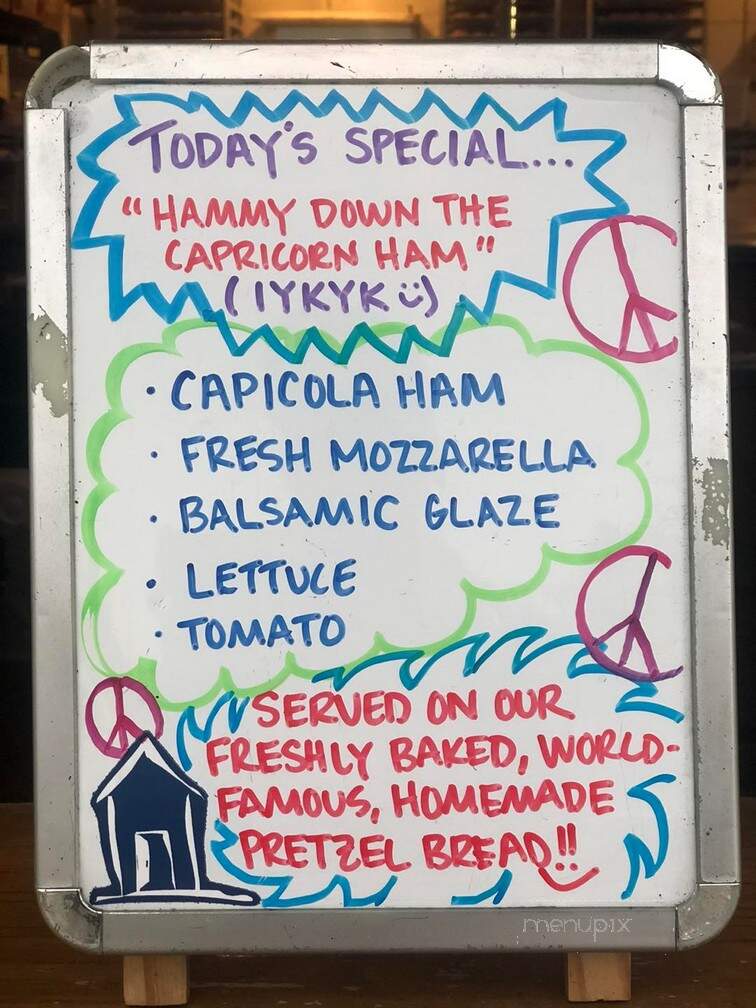 TODAY'S SPECIAL...
"HAMMY DOWN THE
CAPRICORN HAM"
(IYKYK ü)
• CAPICOLA HAM
• FRESH MOZZARELLA
• BALSAMIC GLAZE
• LETTUCE
• TOMATO
SERVED ON OUR
FRESHLY BAKED, WORLD-
FAMOUS, HOMEMADE
PRETZEL BREAD!!
menupix